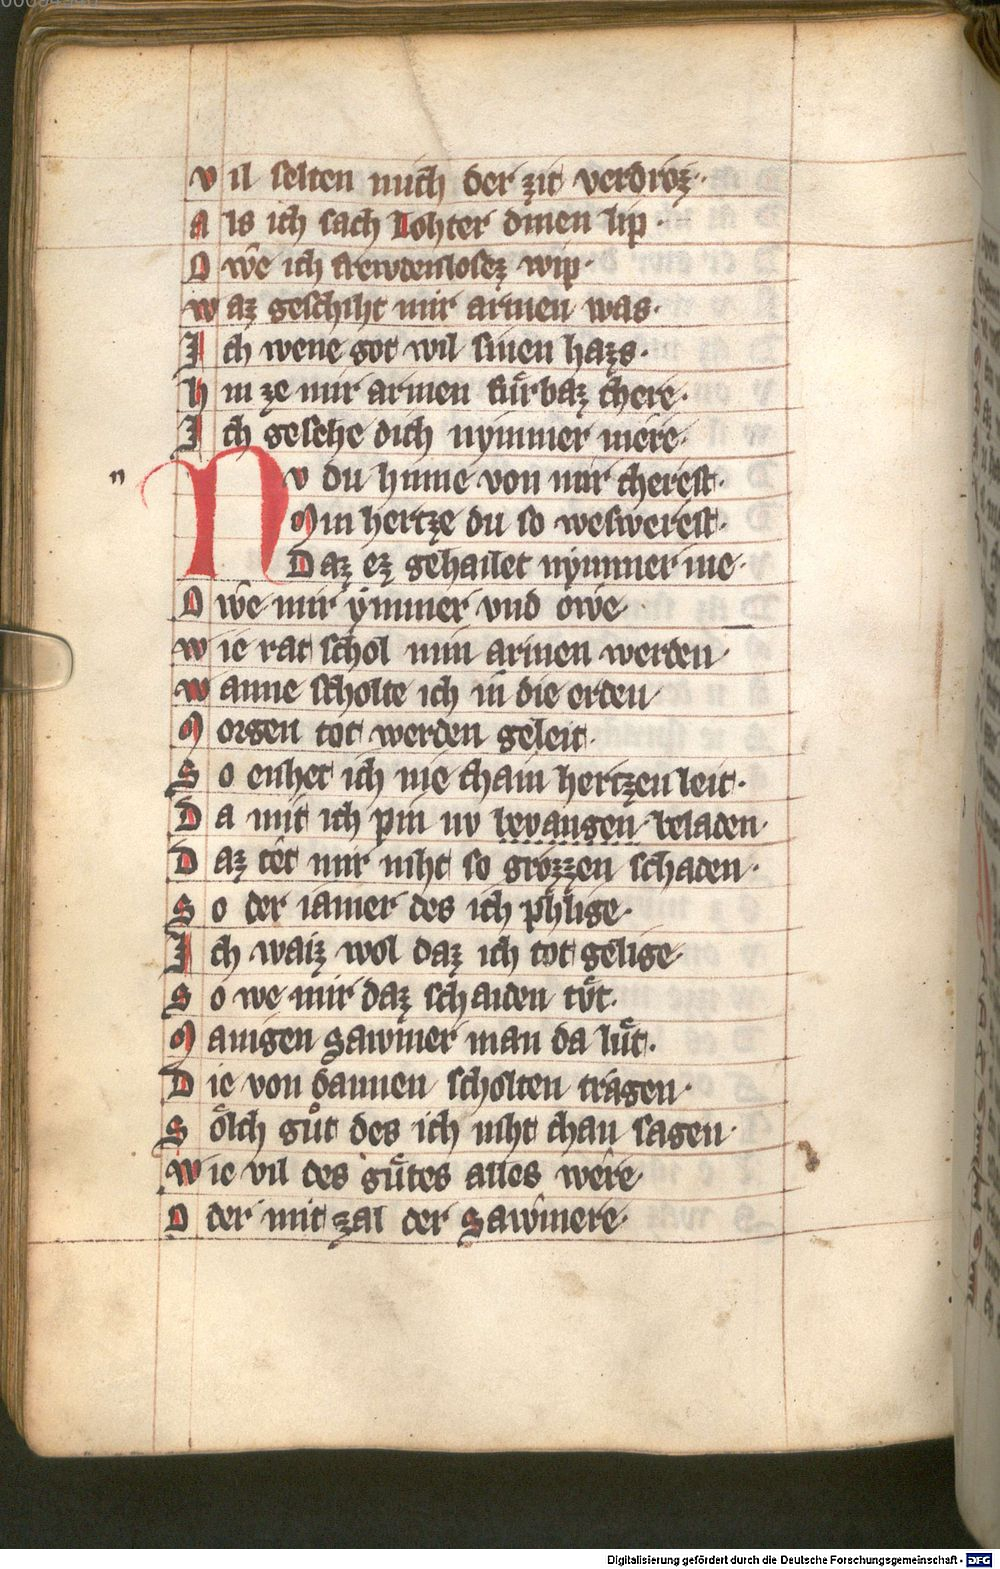 V il selten mich der zit verdroz·
A ls ich sach Tohter dinen lip·
O wê ich frewdenlosez wip·
W az geschiht mir armen was·
I ch wene got wil sinen hazs·
H in ze mir armen fürbaz chere·
I ch gesehe dich nymmer mere·
n N v du hinne von mir cherest·
Min hertze du so beswerest·
Daz ez gehailet nymmer me·
O wê mir ymmer vnd owe
W ie rat schol min armen werden·
W anne scholte ich in die erden
M orgen tot werden geleit·
S o enhet ich nie chain hertzen leit·
D a mit ich pin nv bevangen beladen·
D az têt mir niht so grozzen schaden·
S o der iamer des ich phlige·
I ch waiz wol daz ich tot gelige·
S o we mir daz schaiden tůt·
M anigen Sawmer man da lůt·
D ie von dannen scholten tragen·
S ölch gůt des ich niht chan sagen·
W ie vil des gůtes alles were·
O der mit zal der Sawmere·
Digitalisierung gefördert durch die Deutsche Forschungsgemeinschaft - DFG